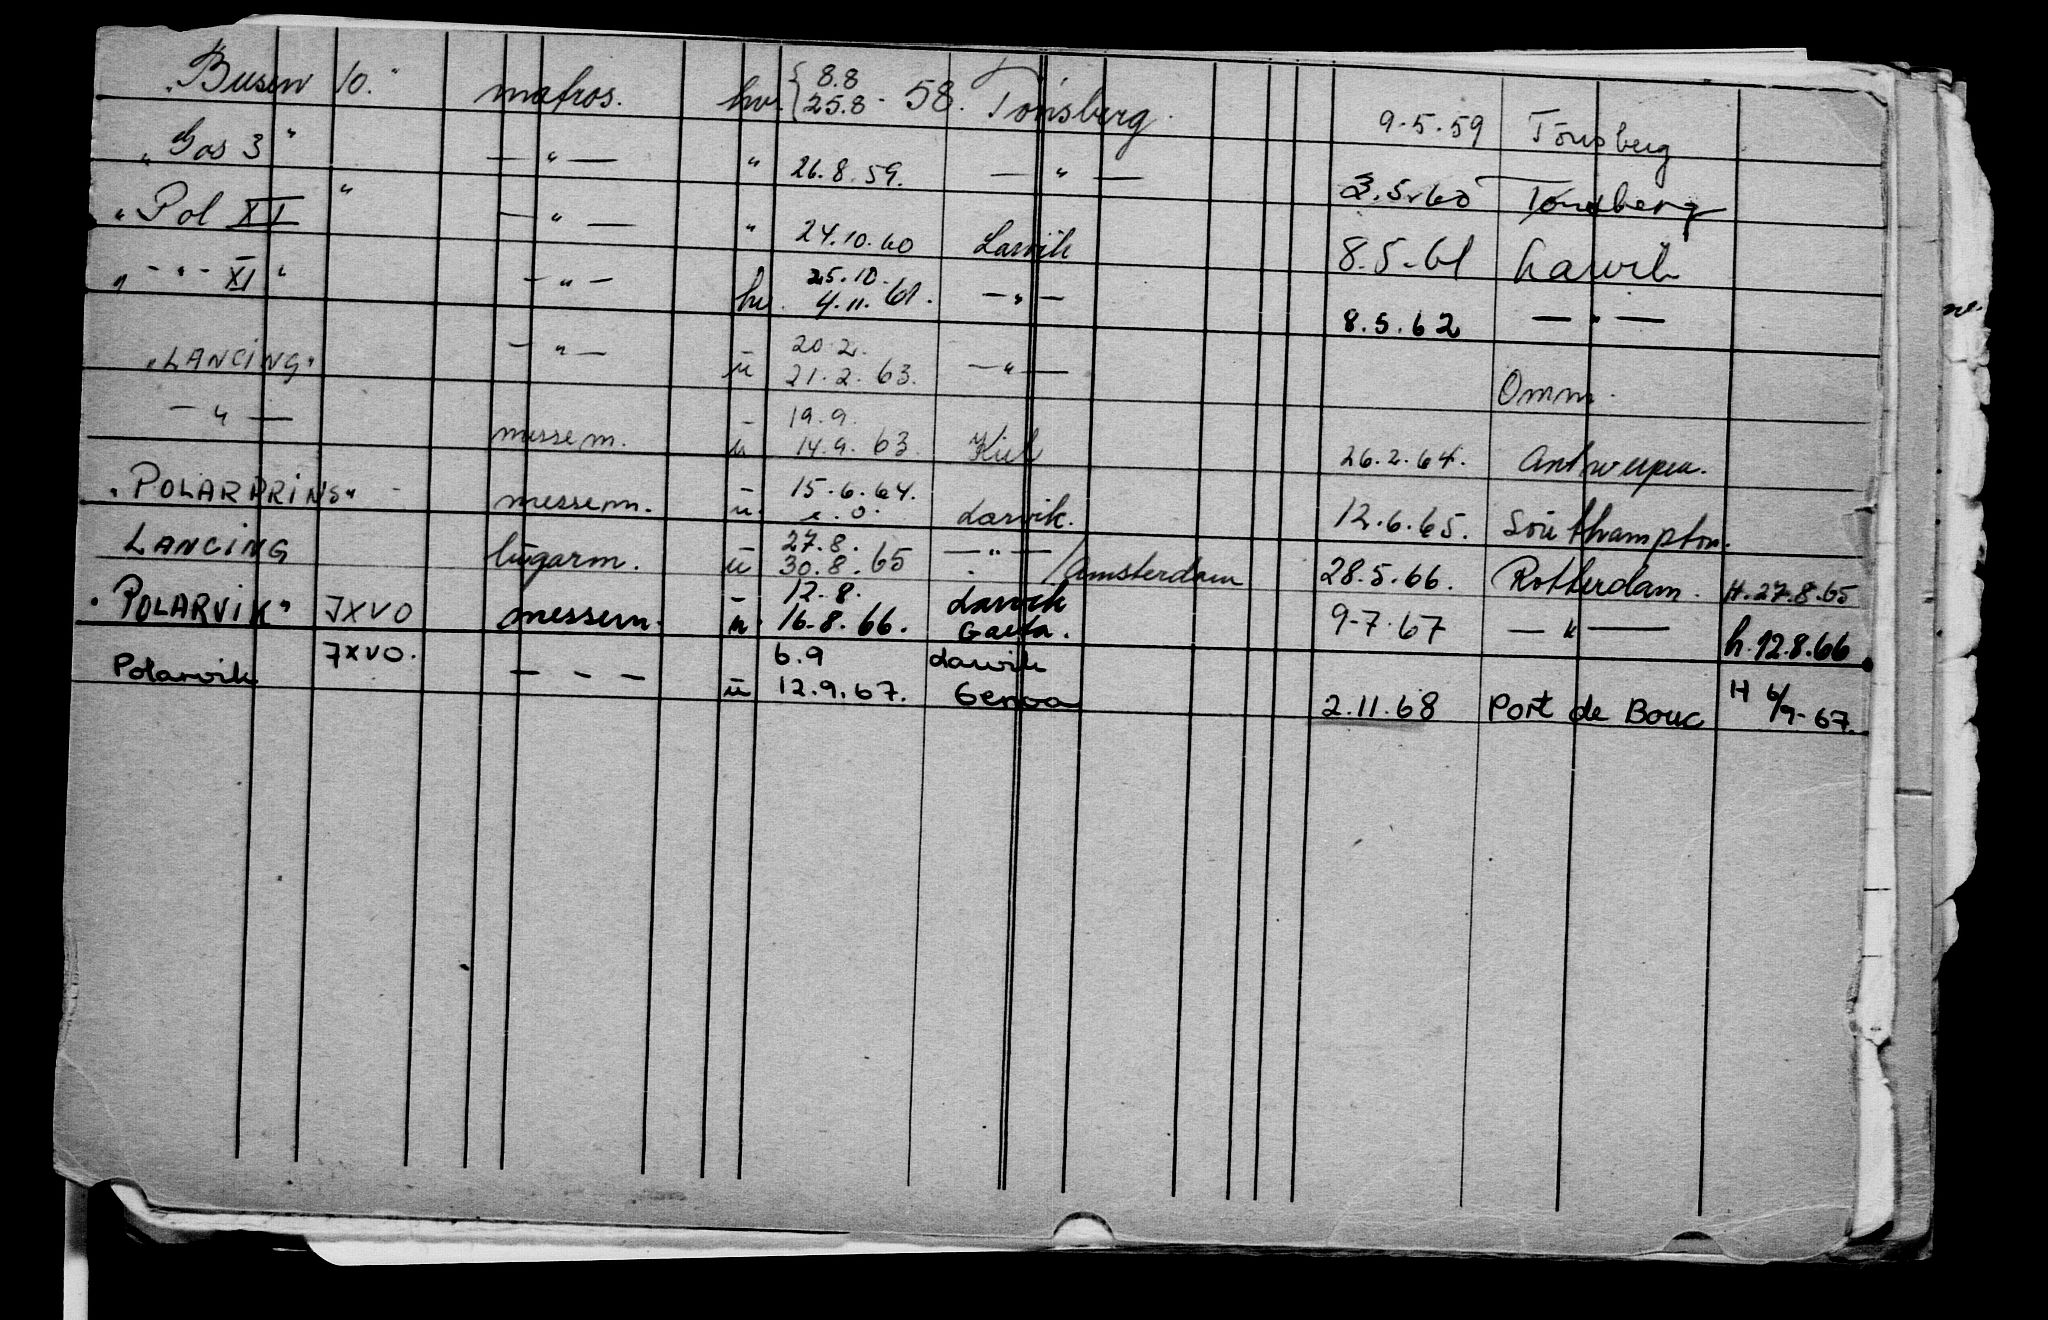 "Busen 10." matros. hv. { 8.8 25.8 - 58. Tönsberg. 9.5.59 Tönsberg
"Gos 3" — " — " 26.8.59. — " — 3.5.60 Tönsberg
"Pol XI" — " — " 24.10.60 Larvik 8.5.61 Larvik
" - " - XI " — " — hv. 25.10. 4.11. 61. — " — 8.5.62 — " —
"LANCING" — " — - u 20.2. 21.2.63. — " — Omm.
— " — messem. - u 19.9. 14.9.63. Kiel 26.2.64. Antwerpen.
"POLARPRINS" - messem. - u. 15.6.64. e.o. Larvik. 12.6.65. Southampton.
LANCING lugarm. - u 27.8. 30.8.65 — " — / Amsterdam 28.5.66. Rotterdam. H. 27.8.65
"POLARVIK" JXVO messem. - u. 12.8. 16.8.66. Larvik Gaeta. 9-7.67 — " — h. 12.8.66
Polarvik JXVO. — - — u 6.9 12.9.67. Larvik Genoa 2.11.68 Port de Bouc H 6/9-67.